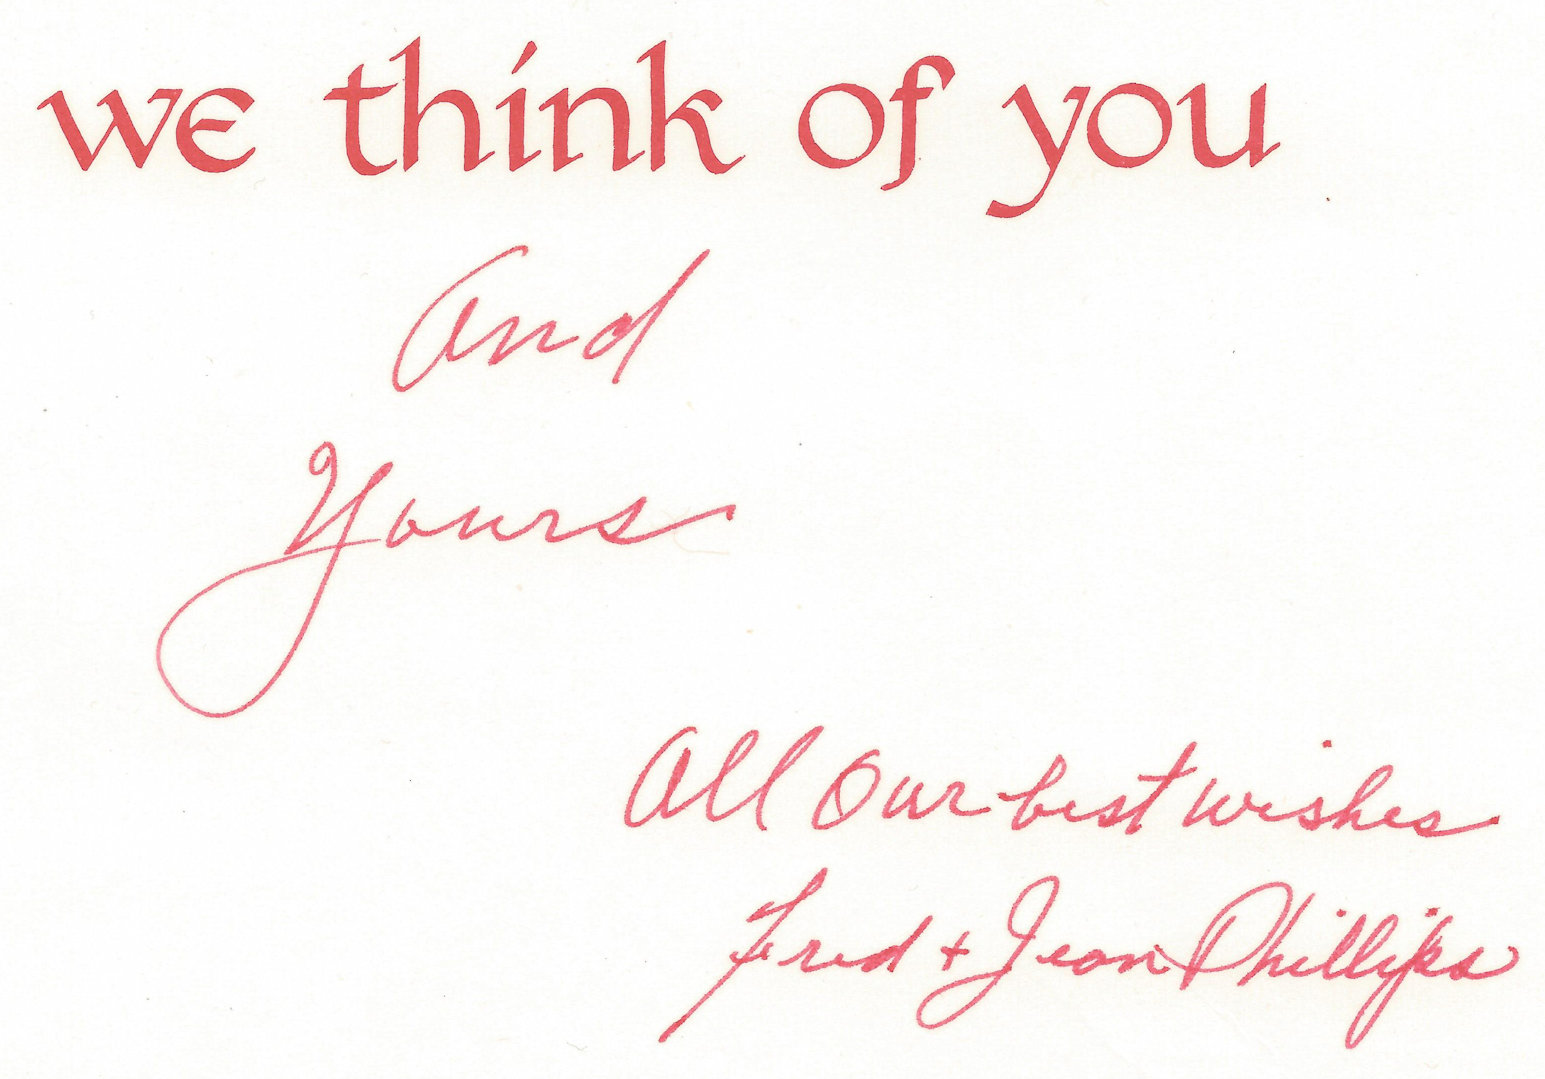 we think of you
And
Yours
All Our best wishes
Fred + Jean Phillips